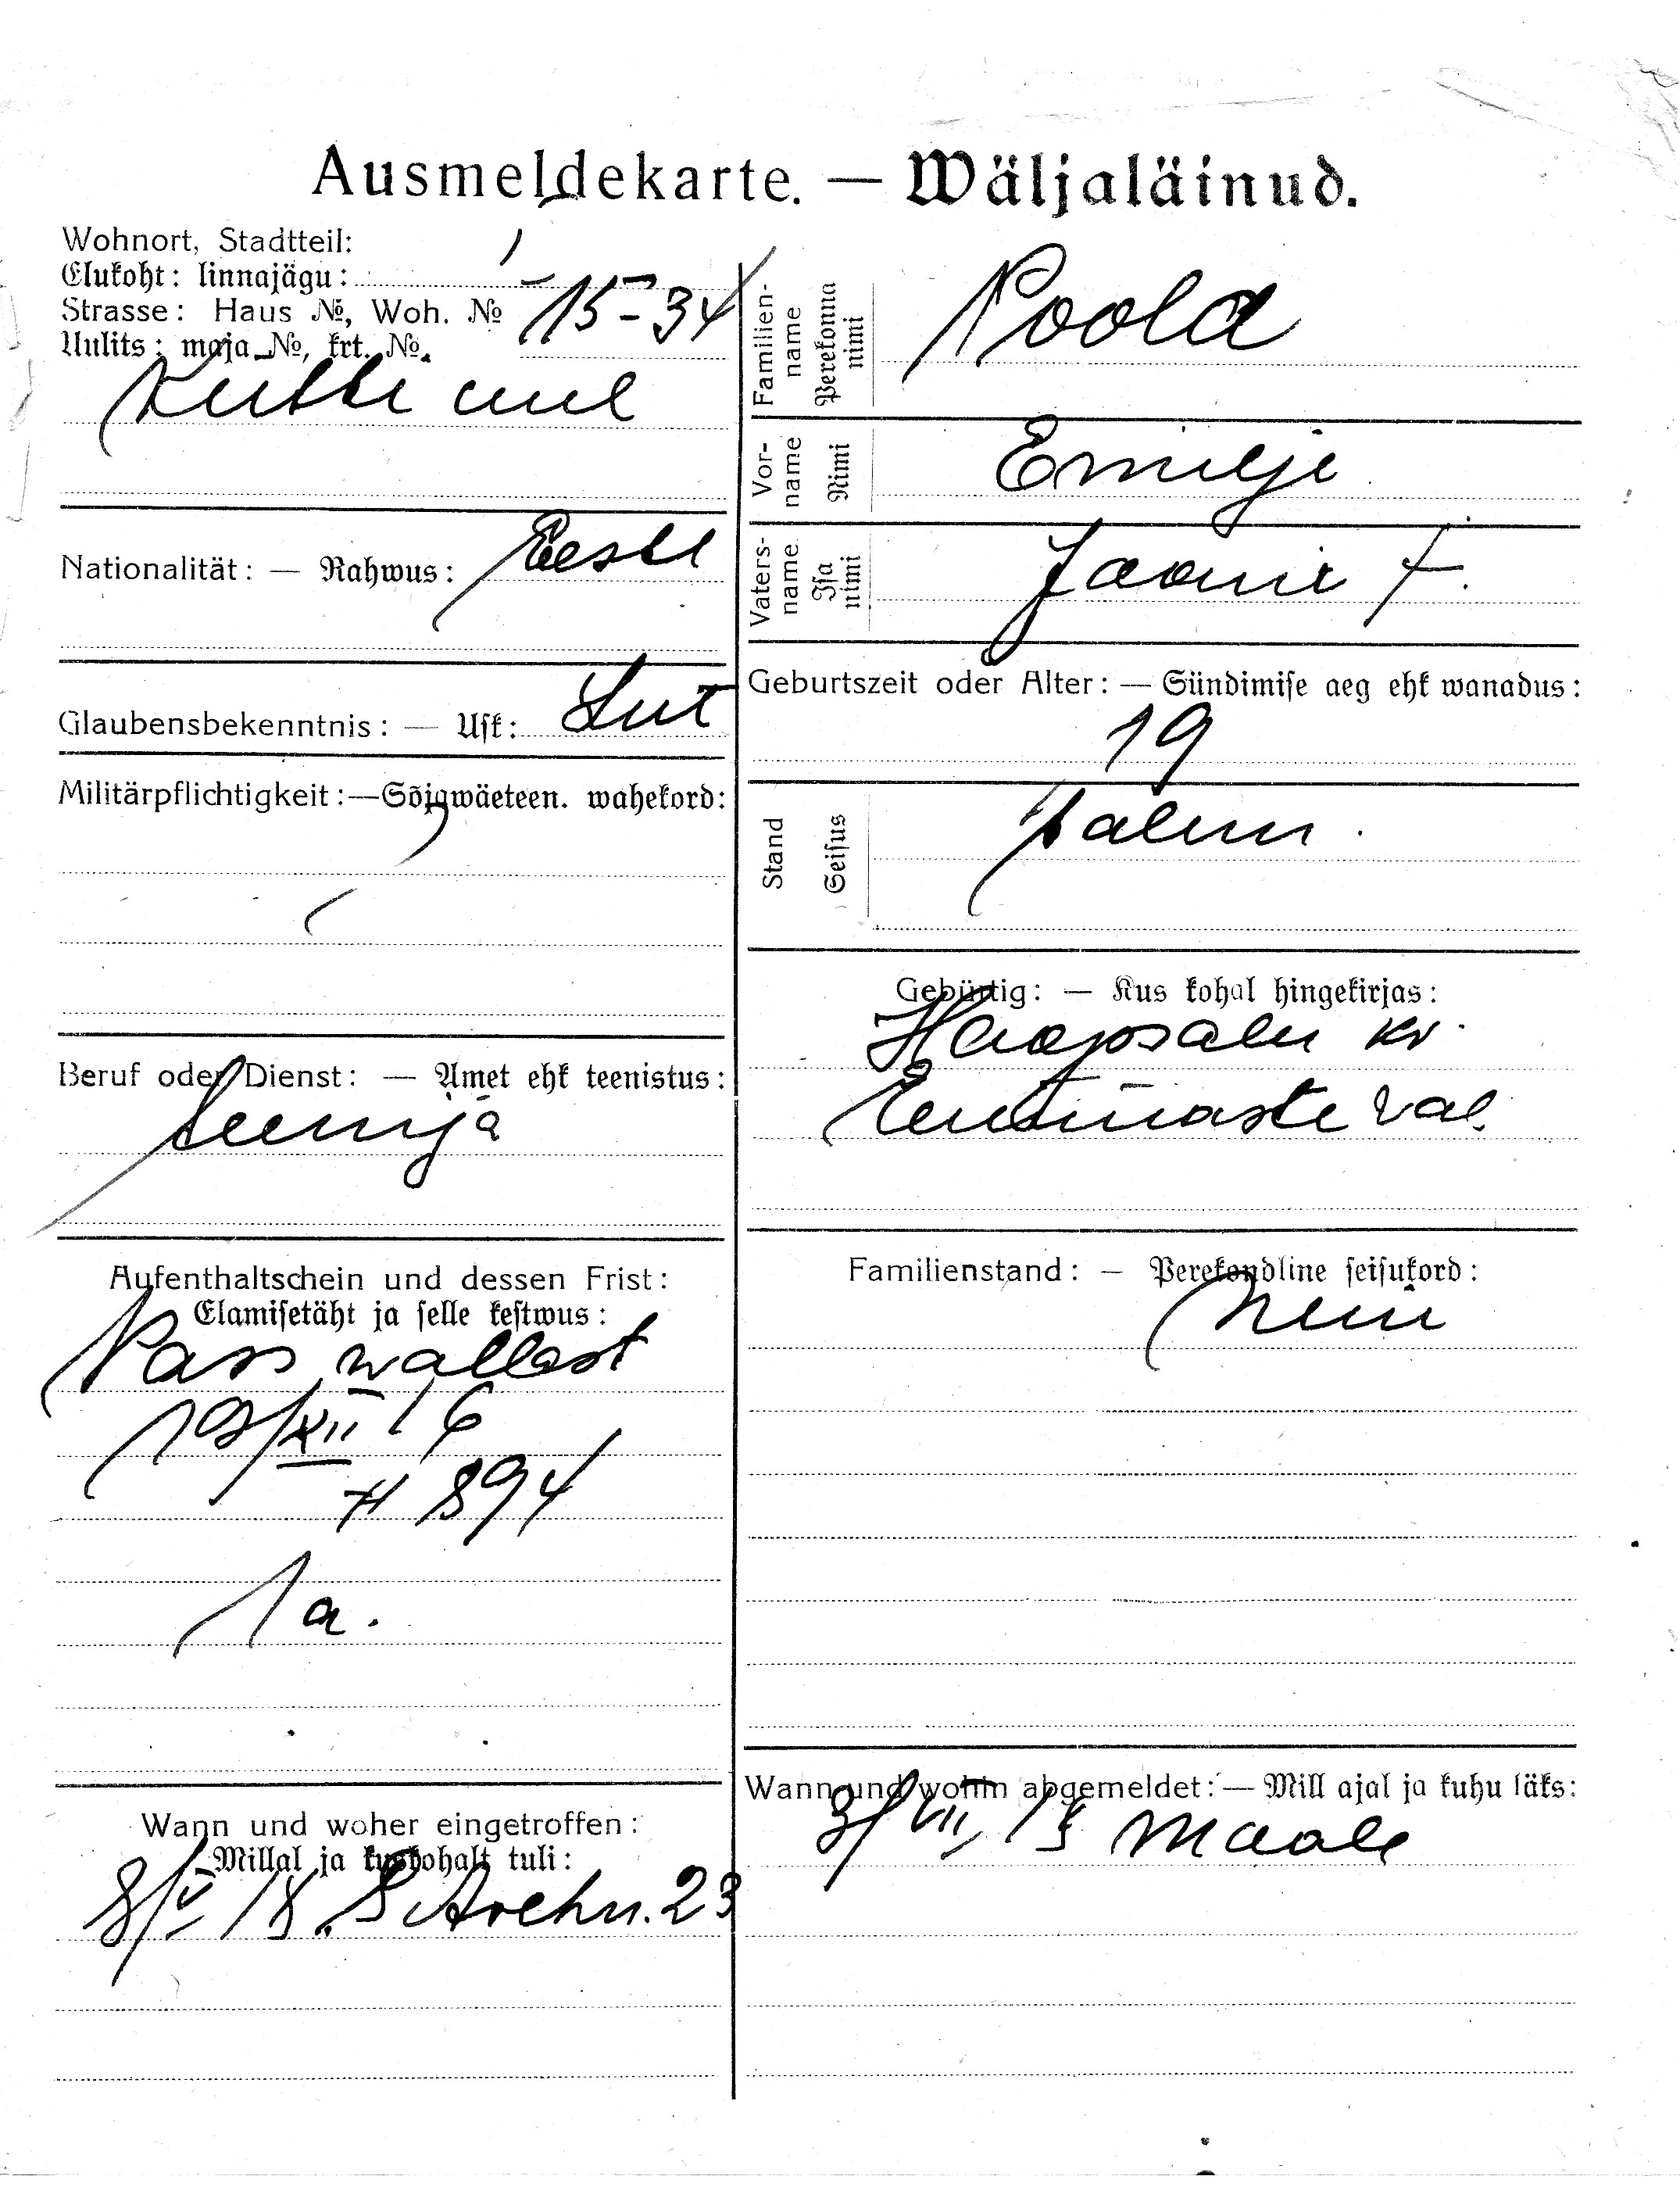 Ausmeldekarte. — Wäljaläinud.
Wohnort, Stadtteil:
Elukoht: linnajägu:
Strasse: Haus №, Woh. № 15 - 34
Uulits: maja №, krt. №.
Nationalität: — Rahwus: Eesti
Glaubensbekenntnis: — Usk: Lut
Militärpflichtigkeit: — Sõjawäeteen. wahekord:
Beruf oder Dienst: — Amet ehk teenistus:
teenija
Aufenthaltschein und dessen Frist:
Elamisetäht ja selle kestwus:
Pass wallast
19/XII 16
№ 894
1 a.
Wann und woher eingetroffen:
Millal ja kuskohalt tuli:
8/V 18. 23
Familien-name Perekonna nimi Poola
Vor-name Nimi Emilje
Vaters-name Isa nimi Jaani t.
Geburtszeit oder Alter: — Sündimise aeg ehk wanadus:
19
Stand Seisus talun.
Gebürtig: — Kus kohal hingekirjas:
Haapsalu kr.
Emmaste val.
Familienstand: — Perekondline seisukord:
neiu
Wann und wohin abgemeldet: — Mill ajal ja kuhu läks:
3/VII 18 Maale